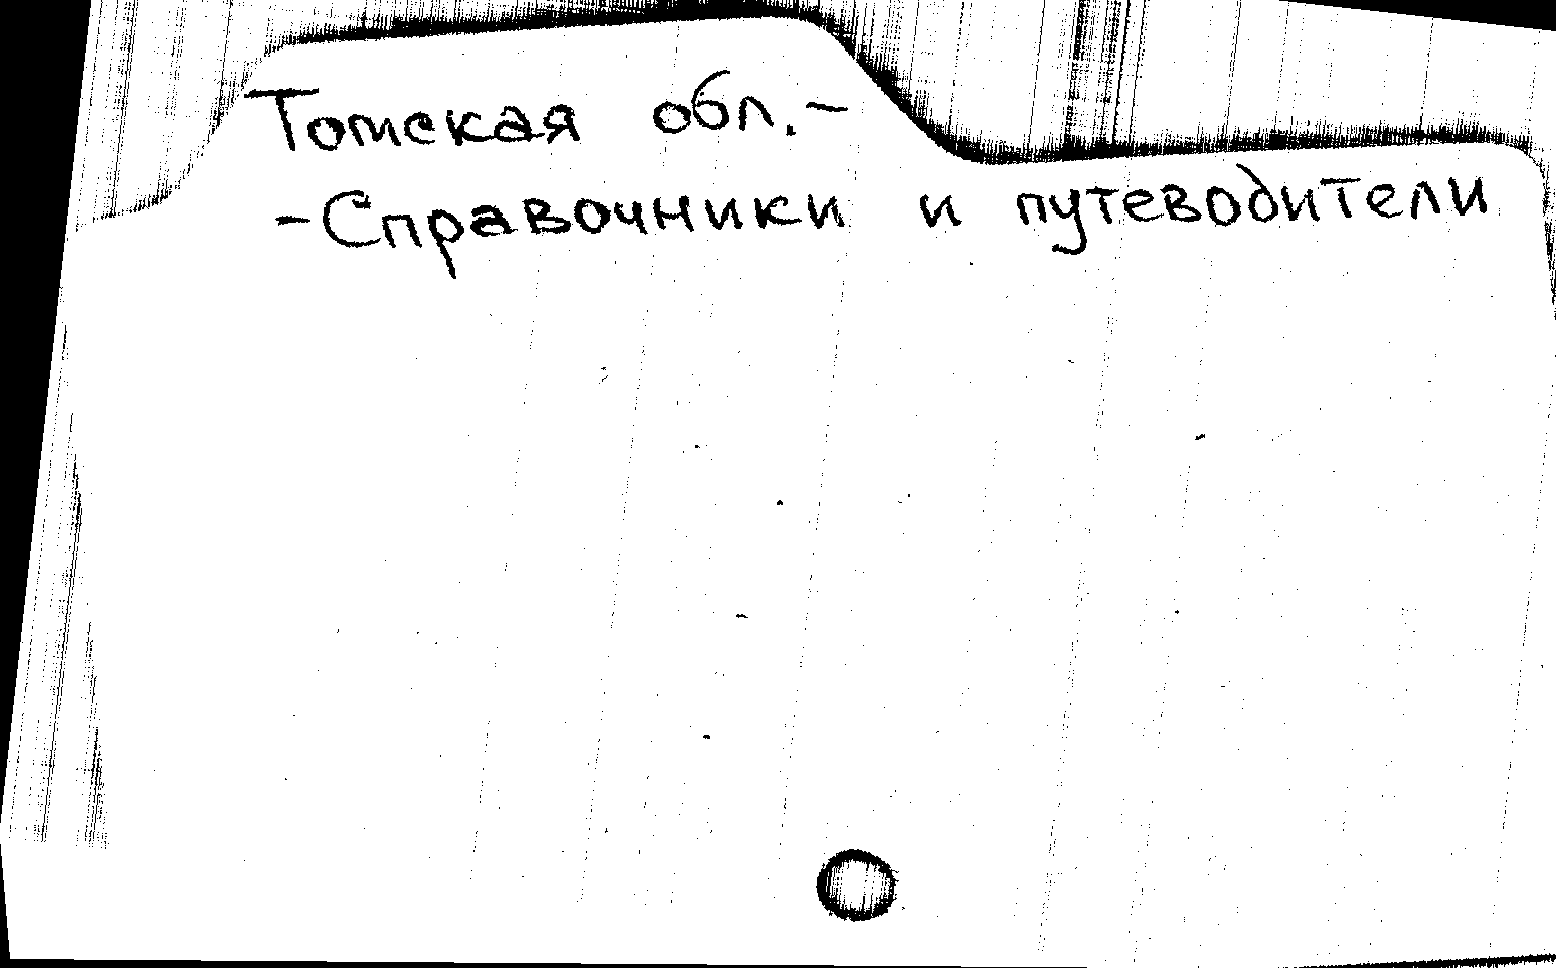 Томская обл.-
-Справочники и путеводители